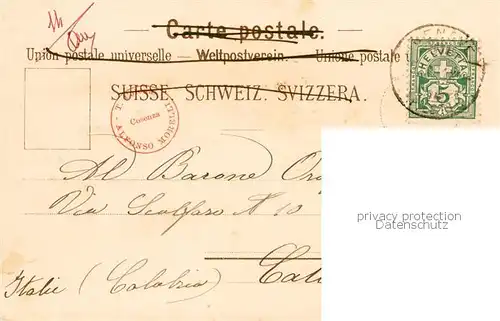 Carte postale.
Union postale universelle – Weltpostverein. – Unione postale u
SUISSE. SCHWEIZ. SVIZZERA.
HELVETIA
5
T. ALFONSO MORELLI
Cosenza
Al Barone
Via Scolfaro N 10
Italie (Calabria)
privacy protection
Datenschutz